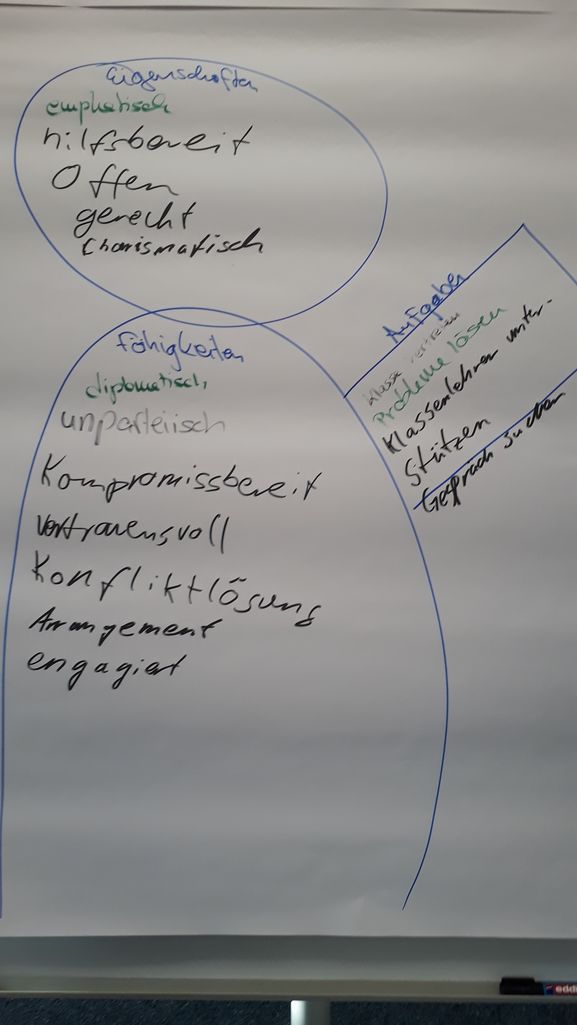 Eigenschaften
emphatisch
hilfsbereit
Offen
gerecht
Charismatisch
Fähigkeiten
diplomatisch
unparteiisch
Kompromissbereit
vertrauensvoll
Konfliktlösung
Arrangement
engagiert
Aufgaben
Klasse vertreten
Probleme lösen
Klassenlehrer unter-
stützen
Gespräch suchen
edd